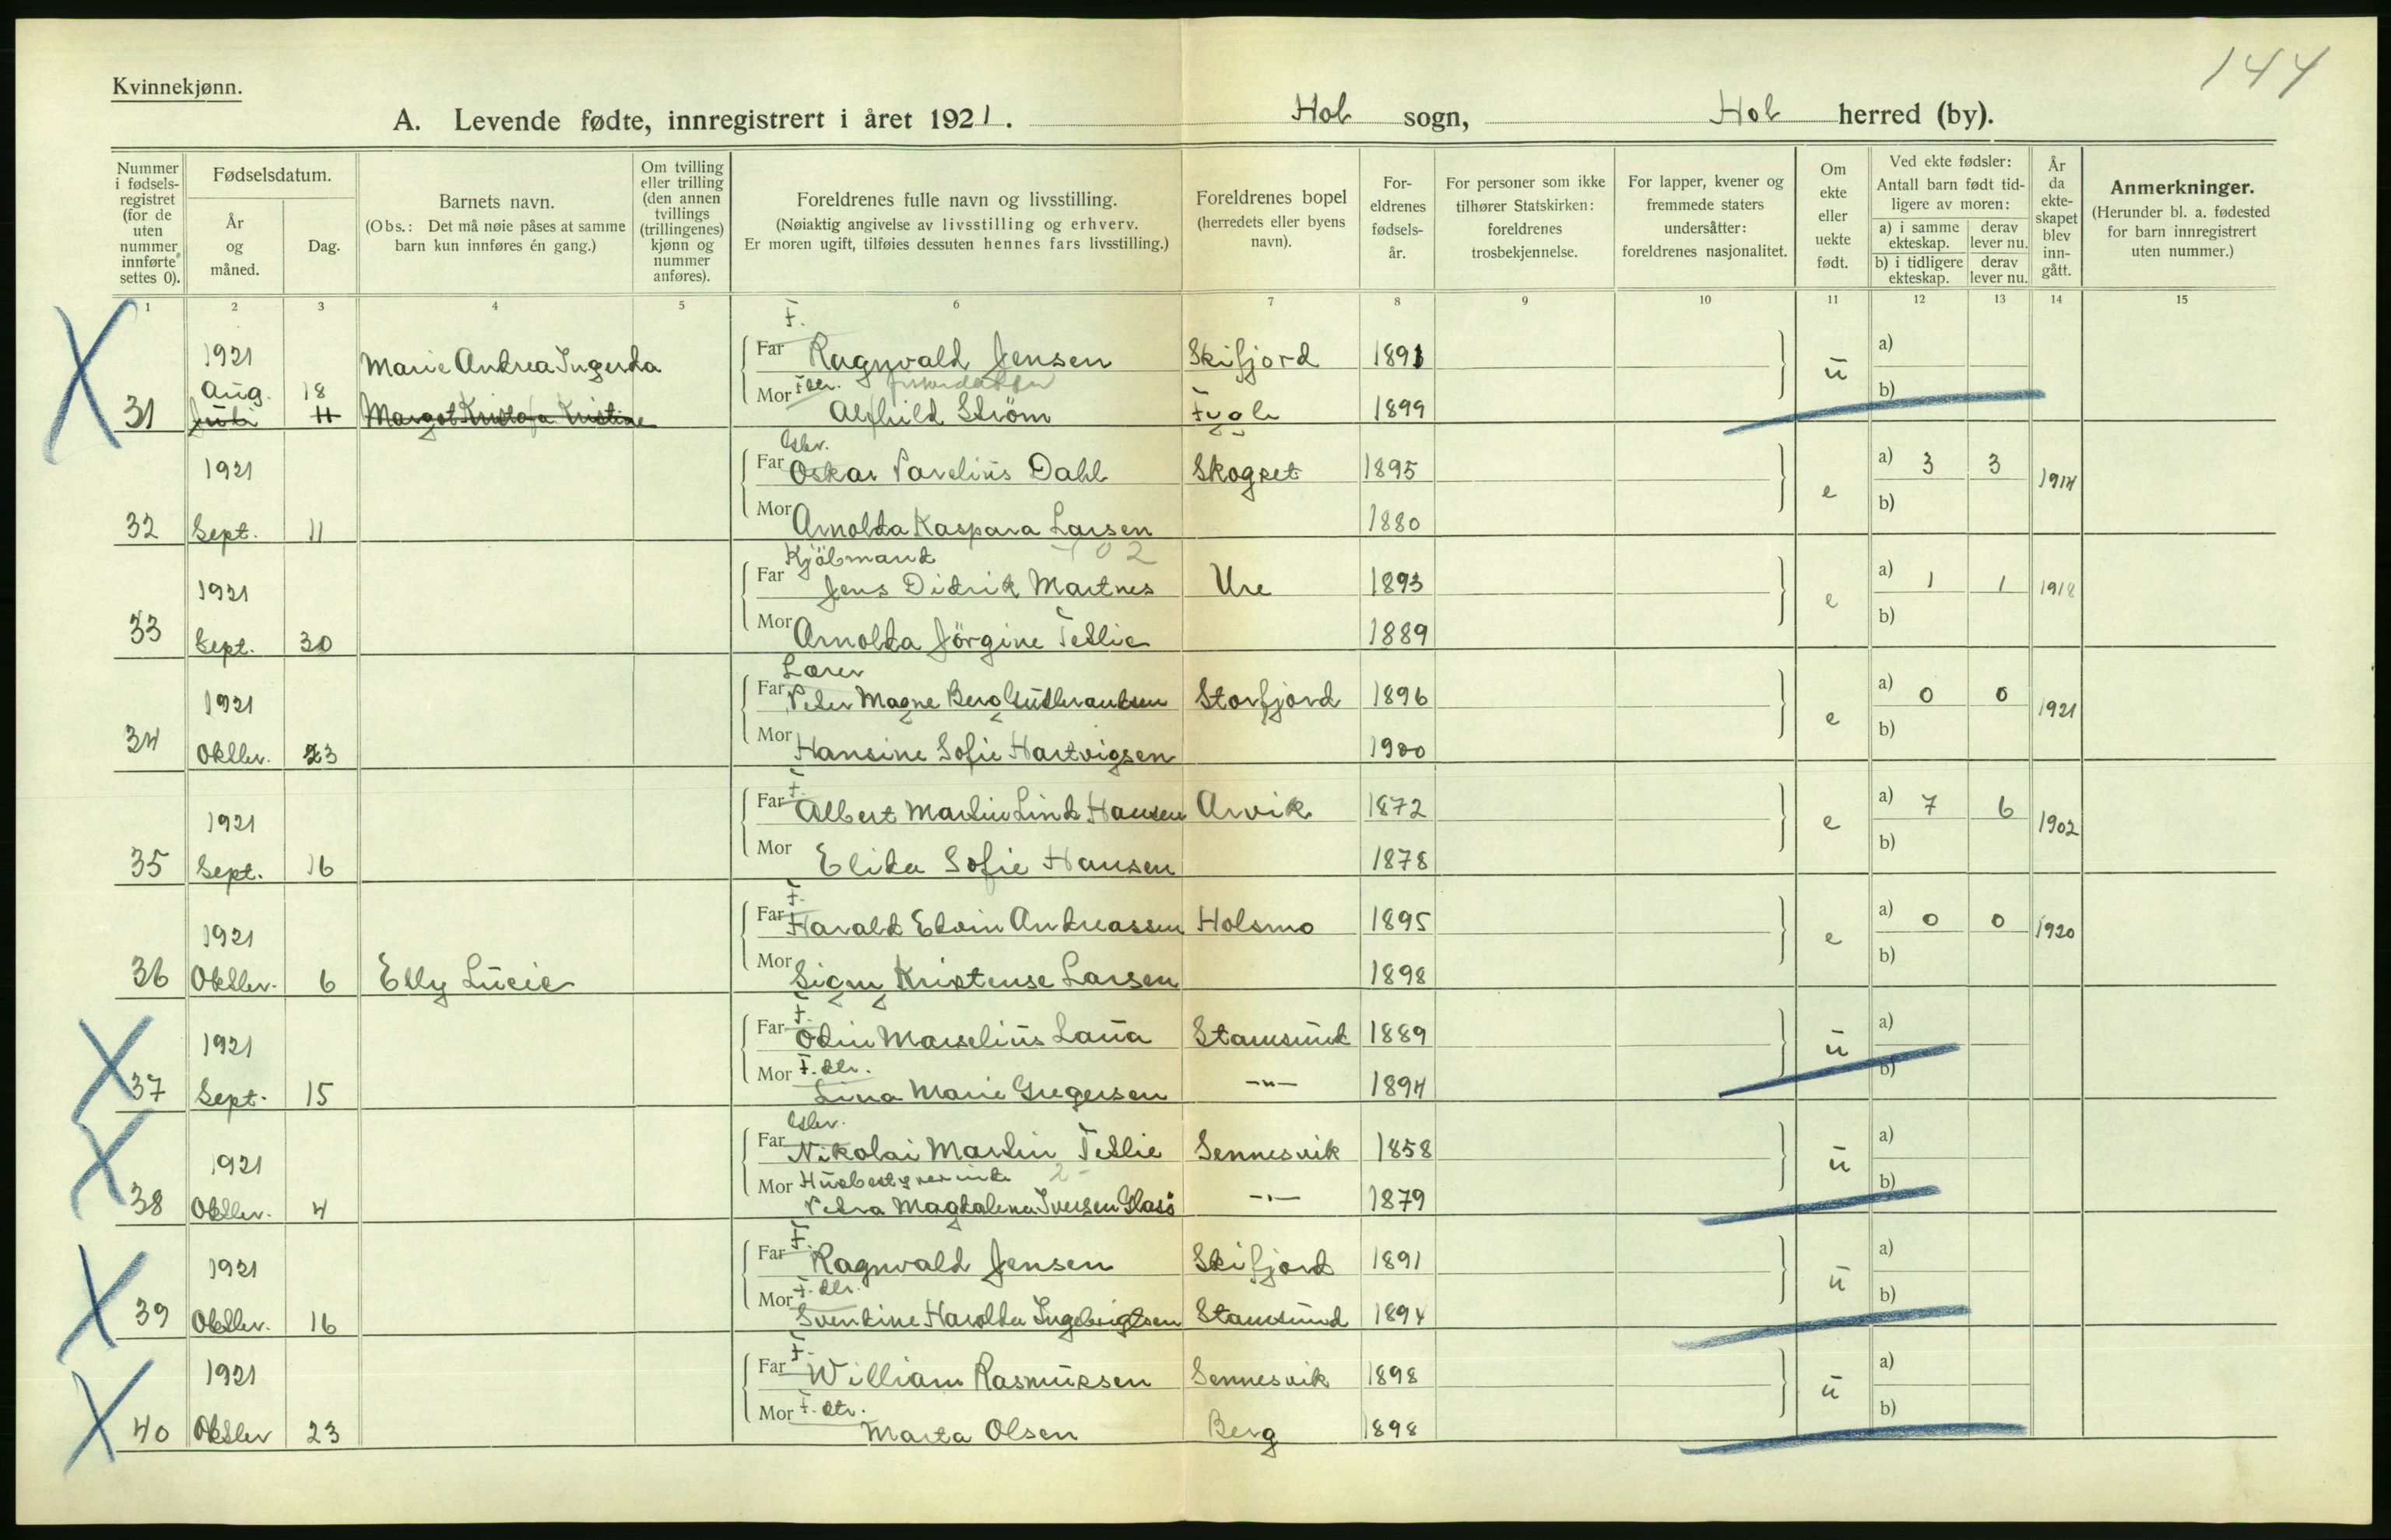 144
Kvinnekjønn.
A. Levende fødte, innregistrert i året 1921. Hol sogn, Hol herred (by).
Nummer i fødsels-registret (for de uten nummer innførte settes 0).
Fødselsdatum.
År og måned.
Dag.
Barnets navn.
(Obs.: Det må nøie påses at samme barn kun innføres én gang.)
Om tvilling eller trilling (den annen tvillings (trillingenes) kjønn og nummer anføres).
Foreldrenes fulle navn og livsstilling.
(Nøiaktig angivelse av livsstilling og erhverv.
Er moren ugift, tilføies dessuten hennes fars livsstilling.)
Foreldrenes bopel (herredets eller byens navn).
For-eldrenes fødsels-år.
For personer som ikke tilhører Statskirken: foreldrenes trosbekjennelse.
For lapper, kvener og fremmede staters undersåtter: foreldrenes nasjonalitet.
Om ekte eller uekte født.
Ved ekte fødsler: Antall barn født tid-ligere av moren:
a) i samme ekteskap. derav lever nu.
b) i tidligere ekteskap. derav lever nu.
År da ekte-skapet blev inn-gått.
Anmerkninger.
(Herunder bl. a. fødested for barn innregistrert uten nummer.)
1 2 3 4 5 6 7 8 9 10 11 12 13 14 15
F.
1921 Marie Andrea Ingerda Far Ragnvald Jensen Skifjord 1891 ü a)
Aug. 18 Mor F. dtr. b)
31 Juli 11 Margot Kristine Alfhild Ström Fygle 1899
Gbr.
1921 Far Oskar Parelius Dahl Skogset 1895 e a) 3 3 1914
32 Sept. 11 Mor Arnolda Kaspara Larsen 1880 b)
Kjöbmand
1921 Far Jens Didrik Martnes Ure 1893 e a) 1 1 1918
33 Sept. 30 Mor Arnolda Jörgine Teslie 1889 b)
Lærer
1921 Far Peter Magne Berg Gulbrandsen Storfjord 1896 e a) 0 0 1921
34 Oktbr. 23 Mor Hansine Sofie Hartvigsen 1900 b)
F.
1921 Far Albert Martin Lind Hansen Arvik 1872 e a) 7 6 1902
35 Sept. 16 Mor Elida Sofie Hansen 1878 b)
F.
1921 Far Harald Edvin Andreassen Holsmo 1895 e a) 0 0 1920
36 Oktbr. 6 Elly Lücie Mor Signy Kristense Larsen 1898 b)
F.
1921 Far Odin Marselius Laua Stamsund 1889 ü a)
Mor F. dtr. b)
37 Sept. 15 Lina Marie Gregersen -"- 1894
Gbr.
1921 Far Nikolai Martin Teslie Sennesvik 1858 ü a)
Mor Husbestyrerinde b)
38 Oktbr. 4 Petra Magdalena Iversen Glasö -"- 1879
F.
1921 Far Ragnvald Jensen Skifjord 1891 ü a)
Mor F. dtr. b)
39 Oktbr. 16 Svendine Harolda Ingebrigtsen Stamsund 1894
F.
1921 Far William Rasmussen Sennesvik 1898 ü a)
Mor F. dtr. b)
40 Oktbr 23 Marta Olsen Berg 1898